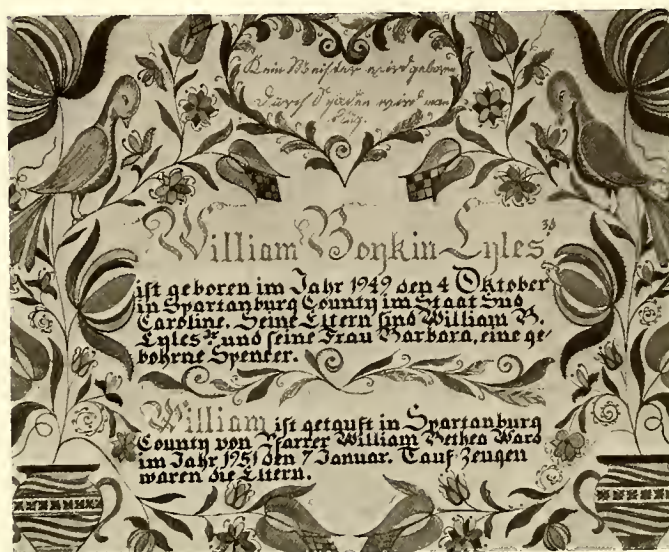 Kein Meister wird geboren
Durch Schaden wird man
klug.
William Boykin Lyles 3d
ist geboren im Jahr 1949 den 4 Oktober
in Spartanburg County im Staat Sud
Caroline. Seine Eltern sind William B.
Lyles Jr und seine Frau Barbara, eine ge-
bohrne Spencer.
William ist getauft in Spartanburg
County von Pfarrer William Bethea Ward
im Jahr 1951 den 7 Januar. Tauf Zeugen
waren die Eltern.